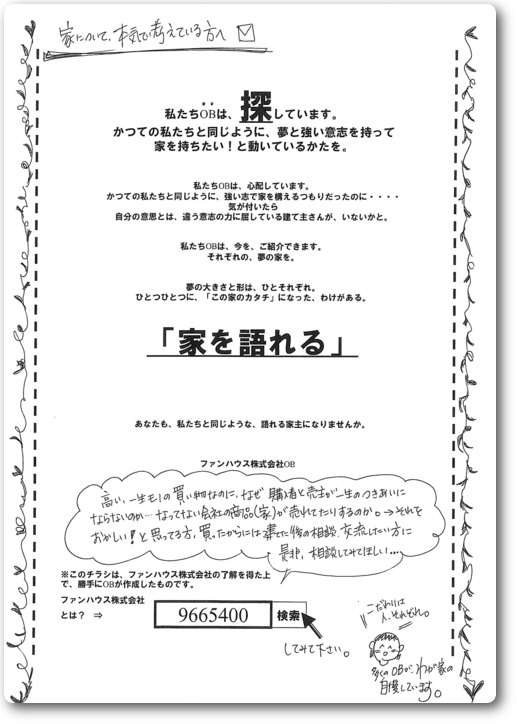 家について、本気で考えている方へ
私たちOBは、探しています。
かつての私たちと同じように、夢と強い意志を持って
家を持ちたい！と動いているかたを。
私たちOBは、心配しています。
かつての私たちと同じように、強い志で家を構えるつもりだったのに・・・・
気が付いたら
自分の意思とは、違う意志の力に屈している建て主さんが、いないかと。
私たちOBは、今を、ご紹介できます。
それぞれの、夢の家を。
夢の大きさと形は、ひとそれぞれ。
ひとつひとつに、「この家のカタチ」になった、わけがある。
「家を語れる」
あなたも、私たちと同じような、語れる家主になりませんか。
ファンハウス株式会社OB
高い、一生モノの買い物なのに、なぜ購入者と売主が一生のつきあいに
ならないのか… なってない会社の商品(家)が売れてたりするのか。→それを
おかしい！と思ってる方、買ったからには建てた後の相談、交流したい方に
是非、相談してみてほしい….
※このチラシは、ファンハウス株式会社の了解を得た上
で、勝手にOBが作成したものです。
ファンハウス株式会社
とは？ ⇒ 9665400 検索
してみて下さい。
こだわりは
人それぞれ。
多くのOBが、わが家の
自慢しています。